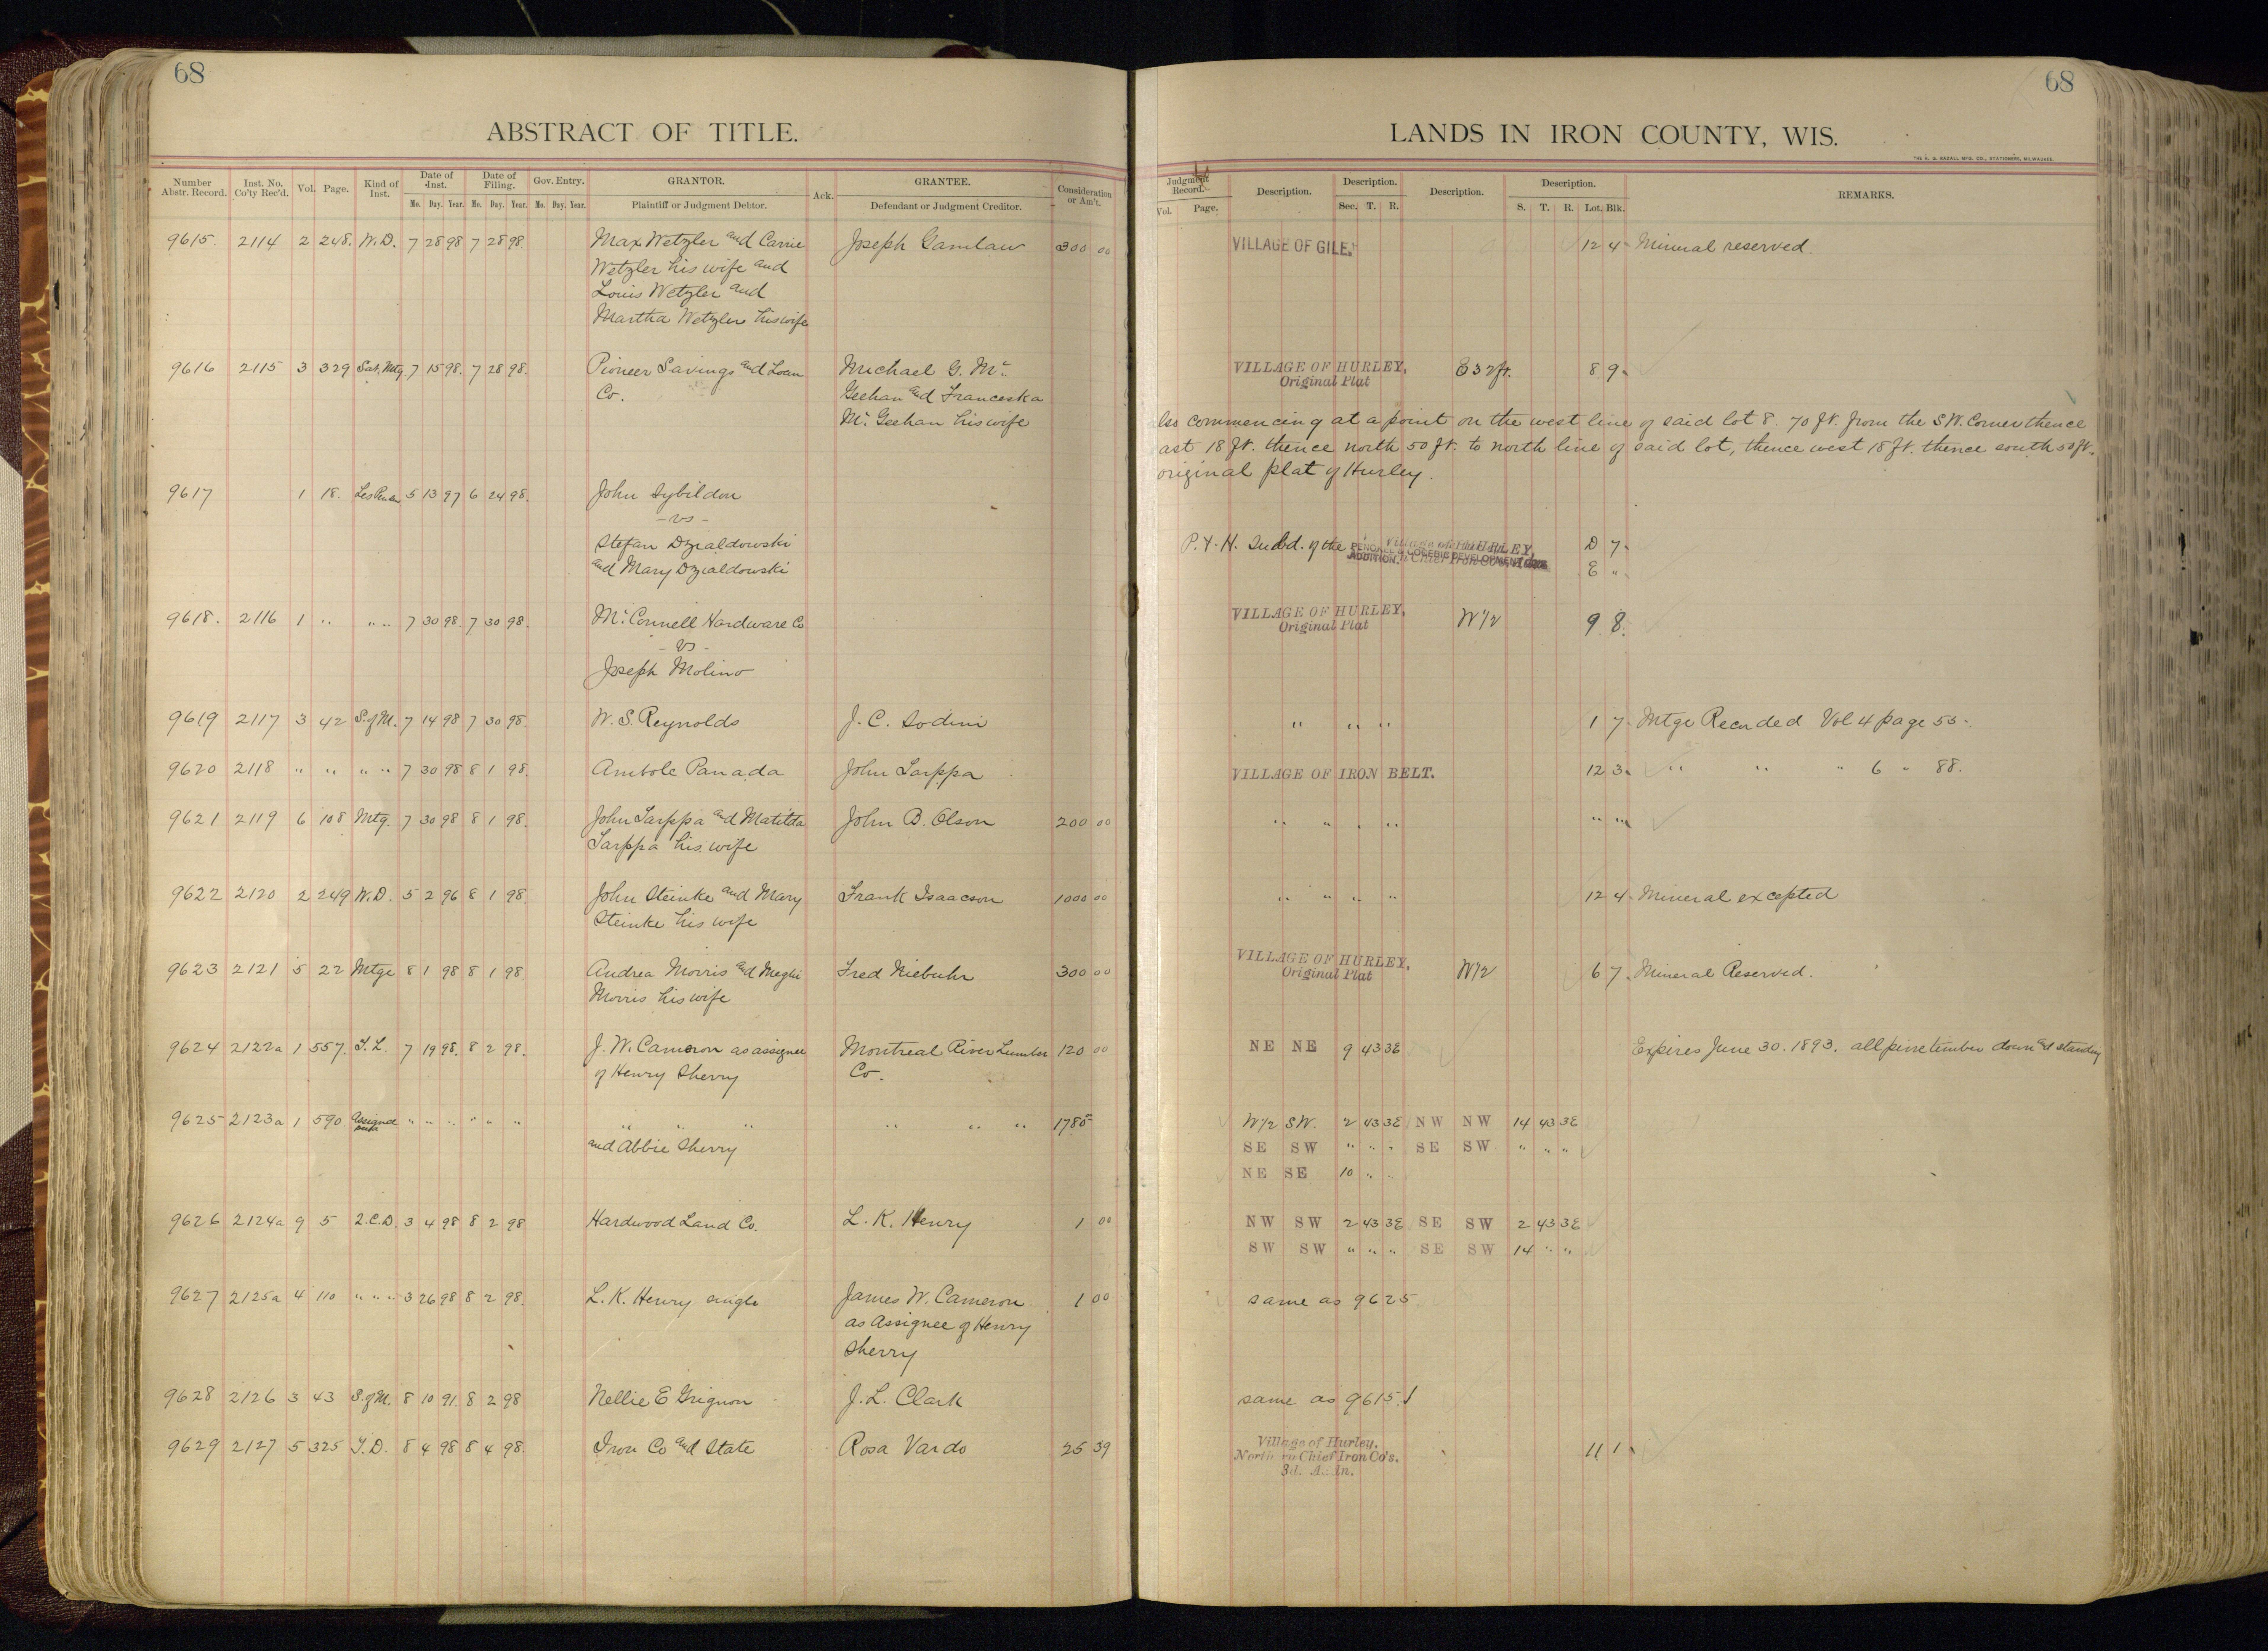 68
ABSTRACT OF TITLE.
Number Abstr. Record. Inst. No. Co'ty Rec'd. Vol. Page. Kind of Inst. Date of Inst. Mo. Day. Year. Date of Filing. Mo. Day. Year. Gov. Entry. Mo. Day. Year. GRANTOR. Plaintiff or Judgment Debtor. Ack. GRANTEE. Defendant or Judgment Creditor. Consideration or Am't.
9615. 2114 2 248. W.D. 7 28 98 7 28 98. Max Wetzler and Carrie Joseph Gamlaw 300 00
Wetzler his wife and
Louis Wetzler and
Martha Wetzler his wife
9616 2115 3 329 Sat. Mtg 7 15 98. 7 28 98. Pioneer Savings and Loan Michael G. Mc
Co. Geehan and Franceska
Mc Geehan his wife
9617 1 18. Les Penden 5 13 97 6 24 98. John Sybildon
- vs -
Stefan Dzialdowski
and Mary Dzialdowski
9618. 2116 1 " " " 7 30 98. 7 30 98. Mc Connell Hardware Co
- vs -
Joseph Molino
9619 2117 3 42 S. of M. 7 14 98 7 30 98. W. S. Reynolds J. C. Sodini
9620 2118 " " " " 7 30 98 8 1 98. Ambole Panada John Sarppa
9621 2119 6 108 Mtg. 7 30 98 8 1 98. John Sarppa and Matilda John B. Olson 200 00
Sarppa his wife
9622 2120 2 249 W.D. 5 2 96 8 1 98. John Steinke and Mary Frank Isaacson 1000 00
Steinke his wife
9623 2121 5 22 Mtge 8 1 98 8 1 98 Andrea Morris and Meghi Fred Niebuhr 300 00
Morris his wife
9624 2122a 1 557. T. L. 7 19 98. 8 2 98. J. W. Cameron as assignee Montreal River Lumber 120 00
of Henry Sherry Co.
9625 2123a 1 590 Assignee " " " " " " " " " " " " 1785
and Abbie Sherry
9626 2124a 9 5 2.C.D. 3 4 98 8 2 98 Hardwood Land Co. L. K. Henry 1 00
9627 2125a 4 110 " " " 3 26 98 8 2 98. L. K. Henry single James W. Cameron 1 00
as Assignee of Henry
Sherry
9628 2126 3 43 S. of M. 8 10 91. 8 2 98 Nellie E Grignon J. L. Clark
9629 2127 5 325 T.D. 8 4 98 8 4 98. Iron Co and State Rosa Vardo 25 39
68
LANDS IN IRON COUNTY, WIS.
THE H. G. RAZALL MFG. CO., STATIONERS, MILWAUKEE.
Judgment Record. Vol. Page. Description. Description. Sec. T. R. Description. Description. S. T. R. Lot. Blk. REMARKS.
VILLAGE OF GILE. 12 4 Minual reserved.
VILLAGE OF HURLEY, E 32 ft. 8 9
Original Plat
lso commencing at a point on the west line of said lot 8. 70 ft. from the S W. Corner thence
ast 18 ft. thence north 50 ft. to north line of said lot, thence west 18 ft. thence south 50 ft.
original plat of Hurley.
P. & H. Subd. of the D 7
E "
VILLAGE OF HURLEY, W 1/2 9 8.
Original Plat
" " " 1 7 Mtge Recorded Vol 4 page 55
VILLAGE OF IRON BELT. 12 3 " " " 6 " 88.
" " " " " "
" " " " 12 4 Mineral excepted
VILLAGE OF HURLEY, W 1/2 6 7 Mineral Reserved.
Original Plat
NE NE 9 43 3E Expires June 30. 1893. all pine timber down and standing
W 1/2 SW. 2 43 3E NW NW 14 43 3E
SE SW " " " SE SW " " "
NE SE 10 " "
NW SW 2 43 3E SE SW 2 43 3E
SW SW " " " SE SW 14 " "
same as 9625
same as 9615.
Village of Hurley. 11 1
Northern Chief Iron Co's.
3d. Addn.